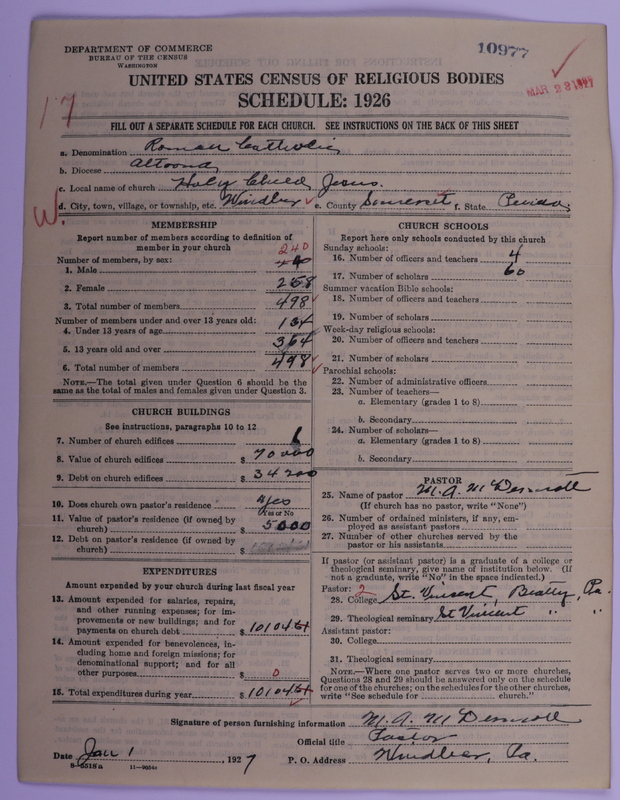 DEPARTMENT OF COMMERCE
BUREAU OF THE CENSUS
WASHINGTON
10977
UNITED STATES CENSUS OF RELIGIOUS BODIES
SCHEDULE: 1926
17
FILL OUT A SEPARATE SCHEDULE FOR EACH CHURCH. SEE INSTRUCTIONS ON THE BACK OF THIS SHEET
a. Denomination Roman Catholic
b. Diocese Altoona
c. Local name of church Holy Child Jesus.
W.
d. City, town, village, or township, etc. Windber e. County Somerset f. State
MEMBERSHIP
Report number of members according to definition of
member in your church
240
Number of members, by sex:
1. Male
2. Female 258
3. Total number of members 498
Number of members under and over 13 years old:
4. Under 13 years of age 134
5. 13 years old and over 364
6. Total number of members 498
NOTE.—The total given under Question 6 should be
same as the total of males and females given under Question 3.
CHURCH BUILDINGS
See instructions, paragraphs 10 to 12
7. Number of church edifices
8. Value of church edifices $ 70000
9. Debt on church edifices $ 34200
10. Does church own pastor's residence yes
Yes or No
11. Value of pastor's residence (if owned by
church) $ 5000
12. Debt on pastor's residence (if owned by
church) $
EXPENDITURES
Amount expended by your church during last fiscal year
13. Amount expended for salaries, repairs,
and other running expenses; for im-
provements or new buildings; and for
payments on church debt $ 10104
14. Amount expended for benevolences, in-
cluding home and foreign missions; for
denominational support; and for all
other purposes $ 0
15. Total expenditures during year $ 10104
CHURCH SCHOOLS
Report here only schools conducted by this church
Sunday schools:
16. Number of officers and teachers 4
17. Number of scholars 60
Summer vacation Bible schools:
18. Number of officers and teachers
19. Number of scholars
Week-day religious schools:
20. Number of officers and teachers
21. Number of scholars
Parochial schools:
22. Number of administrative officers
23. Number of teachers—
a. Elementary (grades 1 to 8)
b. Secondary
24. Number of scholars—
a. Elementary (grades 1 to 8)
b. Secondary
PASTOR
25. Name of pastor M. A. McDermott
(If church has no pastor, write "None")
26. Number of ordained ministers, if any, em-
ployed as assistant pastors
27. Number of other churches served by the
pastor or his assistants
If pastor (or assistant pastor) is a graduate of a college or
theological seminary, give name of institution below. (If
not a graduate, write "No" in the space indicated.)
Pastor: 2
28. College St. Vincent, Beatty, Pa.
29. Theological seminary St Vincent " "
Assistant pastor:
30. College
31. Theological seminary
NOTE.—Where one pastor serves two or more churches,
Questions 28 and 29 should be answered only on the schedule
for one of the churches; on the schedules for the other churches,
write "See schedule for church."
Signature of person furnishing information M. A. McDermott
Official title Pastor
Date Jan 1, 1927 P. O. Address Windber, Pa.
8-5518a 11-9034c